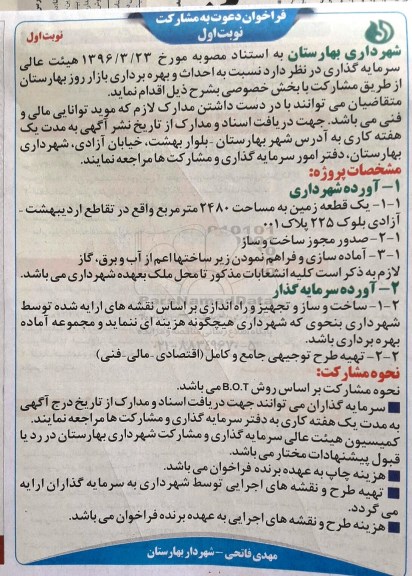 فراخوان دعوت به مشارکت
نوبت اول
نوبت اول
شهرداری بهارستان به استناد مصوبه مورخ ۱۳۹۶/۳/۲۳ هیئت عالی
سرمایه گذاری در نظر دارد نسبت به احداث و بهره برداری بازار روز بهارستان
از طریق مشارکت با بخش خصوصی بشرح ذیل اقدام نماید.
متقاضیان می توانند با در دست داشتن مدارک لازم که موید توانایی مالی و
فنی می باشد. جهت دریافت اسناد و مدارک از تاریخ نشر آگهی به مدت یک
هفته کاری به آدرس شهر بهارستان -بلوار بهشت، خیابان آزادی، شهرداری
بهارستان، دفتر امور سرمایه گذاری و مشارکت ها مراجعه نمایند.
مشخصات پروژه:
۱- آورده شهرداری
۱-۱- یک قطعه زمین به مساحت ۲۴۸۰ مترمربع واقع در تقاطع اردیبهشت -
آزادی بلوک ۲۲۵ پلاک ۰۰۱
۱-۲- صدور مجوز ساخت و ساز
۱-۳- آماده سازی و فراهم نمودن زیر ساختها اعم از آب و برق، گاز
لازم به ذکر است کلیه انشعابات مذکور تا محل ملک بعهده شهرداری می باشد.
۲- آورده سرمایه گذار
۲-۱- ساخت و ساز و تجهیز و راه اندازی بر اساس نقشه های ارایه شده توسط
شهرداری بنحوی که شهرداری هیچگونه هزینه ای ننماید و مجموعه آماده
بهره برداری باشد.
۲-۲- تهیه طرح توجیهی جامع و کامل (اقتصادی -مالی-فنی)
نحوه مشارکت:
نحوه مشارکت بر اساس روش B.O.T می باشد.
سرمایه گذاران می توانند جهت دریافت اسناد و مدارک از تاریخ درج آگهی
به مدت یک هفته کاری به دفتر سرمایه گذاری و مشارکت ها مراجعه نمایند.
کمیسیون هیئت عالی سرمایه گذاری و مشارکت شهرداری بهارستان در رد یا
قبول پیشنهادات مختار می باشد.
هزینه چاپ به عهده برنده فراخوان می باشد.
تهیه طرح و نقشه های اجرایی توسط شهرداری به سرمایه گذاران ارایه
می گردد.
هزینه طرح و نقشه های اجرایی به عهده برنده فراخوان می باشد.
مهدی فاتحی - شهردار بهارستان